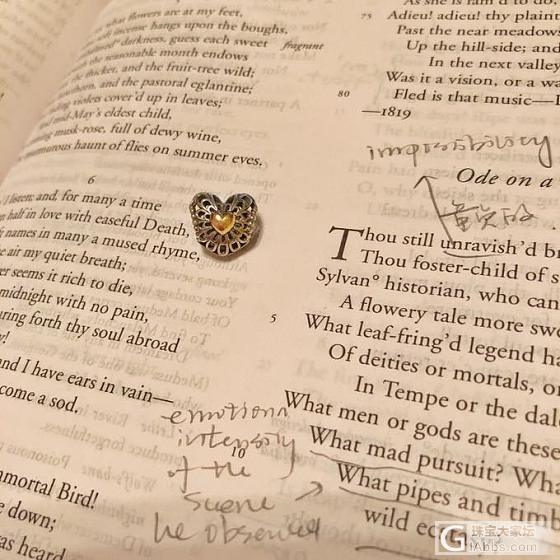 what flowers are at my feet,
soft incense hangs upon the boughs,
darkness, guess each sweet fragrant
the seasonable month endows
the thicket, and the fruit-tree wild;
and the pastoral eglantine;
violets cover'd up in leaves;
mid-May's eldest child,
musk-rose, full of dewy wine,
murmurous haunt of flies on summer eves.
6
I listen; and, for many a time
half in love with easeful Death,
names in many a mused rhyme,
air my quiet breath;
ever seems it rich to die,
midnight with no pain,
pouring forth thy soul abroad
and I have ears in vain—
become a sod.
mmortal Bird!
ee down;
was heard
As she is fam'd to do,
75 Adieu! adieu! thy plain
Past the near meadows
Up the hill-side; and
In the next valley
Was it a vision, or a wa
80 Fled is that music—
—1819
impossibility
Ode on a
Thou still unravish'd b
Thou foster-child of s
Sylvan° historian, who can
A flowery tale more swe
5 What leaf-fring'd legend ha
Of deities or mortals, o
In Tempe or the dal
What men or gods are these
10 What mad pursuit? Wha
What pipes and timb
wild ec
emotional
intensity
of the
scene
he observed
珠宝大家坛
IAbbs.com